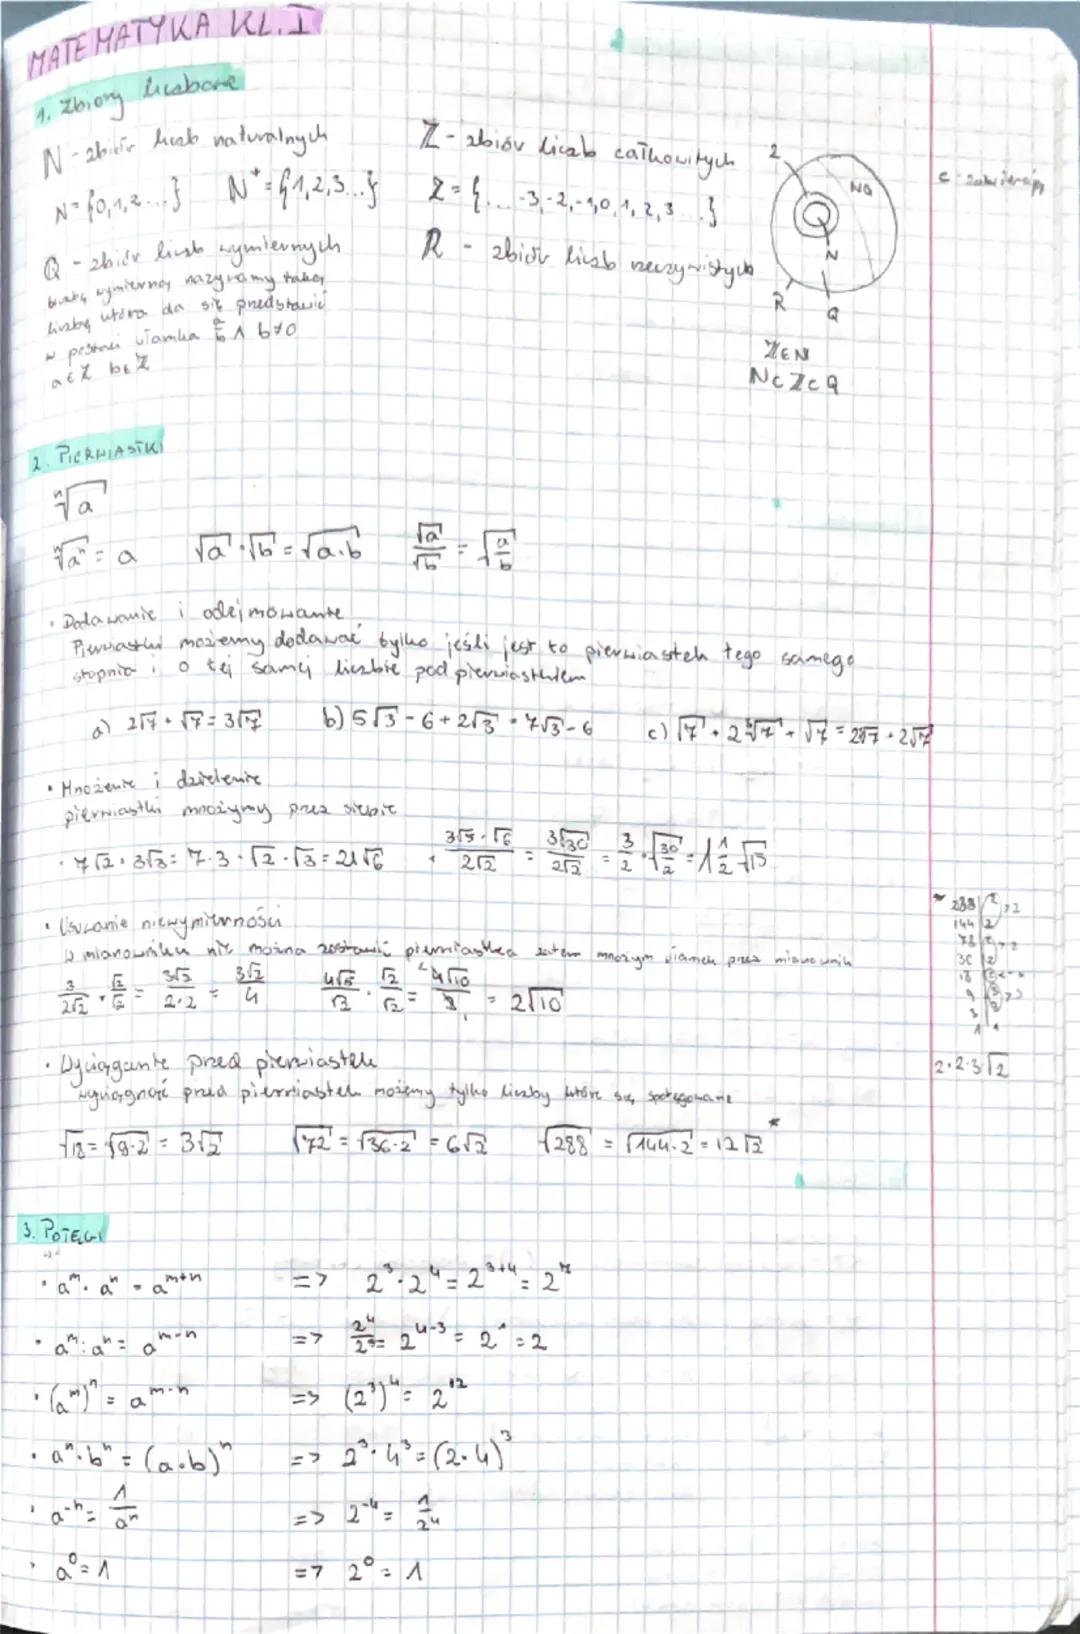 MATEMATYKA KL.I
1. Zbiory liczbowe
N - zbiór liczb naturalnych
Z - zbiór liczb całkowitych
N = {0,1,2...} N* = {1,2,3...}
Z = {...-3,-2,-1,0,1,2,3...}
Q - zbiór liczb wymiernych
R - zbiór liczb rzeczywistych
wymierną nazywamy taką
liczbę która da się przedstawić
w postaci ułamka a/b ∧ b≠0
a∈Z b∈Z
Z
NQ
Q
N
R
Q
Z∈N
N⊂Z⊂Q
2. PIERWIASTKI
ⁿ√a
ⁿ√aⁿ = a √a · √b = √a·b √a/√b = √a/b
· Dodawanie i odejmowanie
Pierwiastki możemy dodawać tylko jeśli jest to pierwiastek tego samego
stopnia i o tej samej liczbie pod pierwiastkiem
a) 2√7 + √7 = 3√7 b) 5√3 - 6 + 2√3 = 7√3 - 6
· Mnożenie i dzielenie
pierwiastki mnożymy przez siebie
· 7√2 · 3√3 = 7·3·√2·√3 = 21√6
· 3√5·√6/2√2 = 3√30/2√2 = 3/2 · √30/2 = 1 1/2 √15
· Usuwanie niewymierności
W mianowniku nie można zostawić pierwiastka zatem mnożym ułamek przez mianownik
3/2√2 · √2/√2 = 3√2/2·2 = 3√2/4
4√5/√2 · √2/√2 = 4√10/2 = 2√10
· Wyciąganie przed pierwiastek
wyciągnąć przed pierwiastek możemy tylko liczby które są spotęgowane
√18 = √9·2 = 3√2 √72 = √36·2 = 6√2 √288 = √144·2 = 12√2 *
* 288 2
144 2
18
9 3
3
1
2·2·3√2
3. POTĘGI
· aᵐ · aⁿ = aᵐ⁺ⁿ => 2³·2⁴ = 2³⁺⁴ = 2⁷
· aᵐ : aⁿ = aᵐ⁻ⁿ => 2⁴/2³ = 2⁴⁻³ = 2¹ = 2
· (aᵐ)ⁿ = aᵐ·ⁿ => (2³)⁴ = 2¹²
· aⁿ·bⁿ = (a·b)ⁿ => 2³·4³ = (2·4)³
· a⁻ⁿ = 1/aⁿ => 2⁻⁴ = 1/2⁴
· a⁰ = 1 => 2⁰ = 1